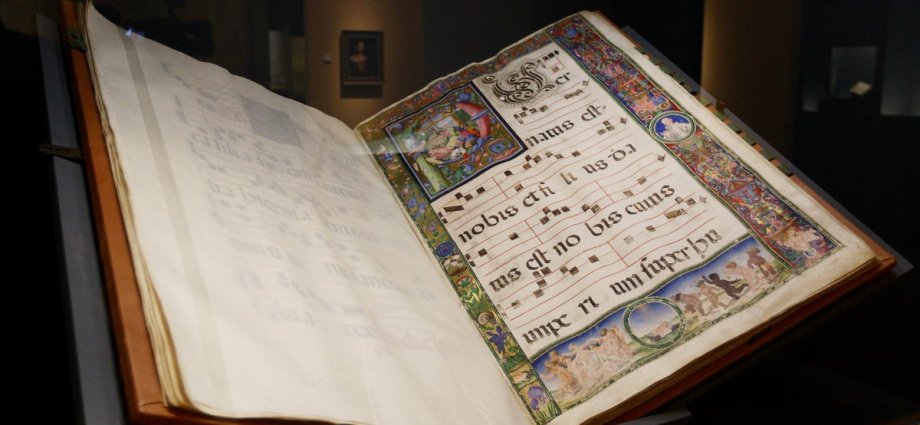 PUer
natus est
nobis et fi li us da
tus est no bis cuius
impe ri um super hu